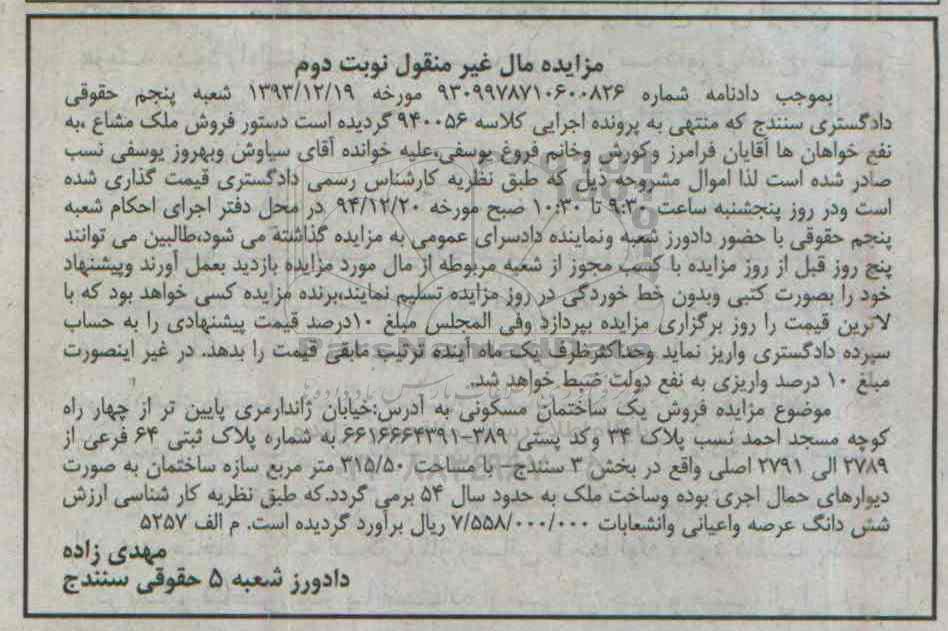 مزایده مال غیر منقول نوبت دوم
بموجب دادنامه شماره ۹۳۰۹۹۷۸۷۱۰۶۰۰۸۲۶ مورخه ۱۳۹۳/۱۲/۱۹ شعبه پنجم حقوقی
دادگستری سنندج که منتهی به پرونده اجرایی کلاسه ۹۴۰۰۵۶ گردیده است دستور فروش ملک مشاع ،به
نفع خواهان ها آقایان فرامرز وکورش وخانم فروغ یوسفی،علیه خوانده آقای سیاوش وبهروز یوسفی نسب
صادر شده است لذا اموال مشروحه ذیل که طبق نظریه کارشناس رسمی دادگستری قیمت گذاری شده
است ودر روز پنجشنبه ساعت ۹:۳۰ تا ۱۰:۳۰ صبح مورخه ۹۴/۱۲/۲۰ در محل دفتر اجرای احکام شعبه
پنجم حقوقی با حضور دادورز شعبه ونماینده دادسرای عمومی به مزایده گذاشته می شود،طالبین می توانند
پنج روز قبل از روز مزایده با کسب مجوز از شعبه مربوطه از مال مورد مزایده بازدید بعمل آورند وپیشنهاد
خود را بصورت کتبی وبدون خط خوردگی در روز مزایده تسلیم نمایند،برنده مزایده کسی خواهد بود که با
لاترین قیمت را روز برگزاری مزایده بپردازد وفی المجلس مبلغ ۱۰درصد قیمت پیشنهادی را به حساب
سپرده دادگستری واریز نماید وحداکثرظرف یک ماه آینده ترتیب مابقی قیمت را بدهد. در غیر اینصورت
مبلغ ۱۰ درصد واریزی به نفع دولت ضبط خواهد شد.
موضوع مزایده فروش یک ساختمان مسکونی به آدرس:خیابان ژاندارمری پایین تر از چهار راه
کوچه مسجد احمد نسب پلاک ۳۴ وکد پستی ۳۸۹-۶۶۱۶۶۶۴۳۹۱ به شماره پلاک ثبتی ۶۴ فرعی از
۲۷۸۹ الی ۲۷۹۱ اصلی واقع در بخش ۳ سنندج- با مساحت ۳۱۵/۵۰ متر مربع سازه ساختمان به صورت
دیوارهای حمال اجری بوده وساخت ملک به حدود سال ۵۴ برمی گردد.که طبق نظریه کار شناسی ارزش
شش دانگ عرصه واعیانی وانشعابات ۷/۵۵۸/۰۰۰/۰۰۰ ریال براورد گردیده است. م الف ۵۲۵۷
مهدی زاده
دادورز شعبه ۵ حقوقی سنندج
ParsNamadData